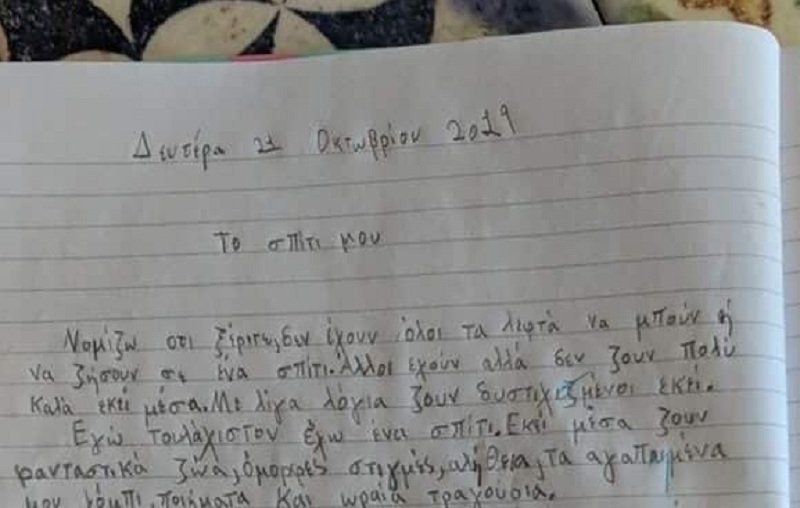 Δευτέρα 21 Οκτωβρίου 2019
Το σπίτι μου
Νομίζω οτι ξέριτε, δεν έχουν όλοι τα λεφτά να μπούν ή
να ζήσουν σε ένα σπίτι. Άλλοι έχούν αλλά δεν ζουν πολύ
καλά εκεί μέσα. Με λίγα λόγια ζουν δυστιχεζμένοι εκεί.
Εγώ τουλάχιστον έχω ένα σπίτι. Εκεί μέσα ζουν
φανταστικά ζώα, όμορφες στιγμές, αλήθεια, τα αγαπημένα
μου κόμπι, ποιήματα και ωραία τραγούδια.